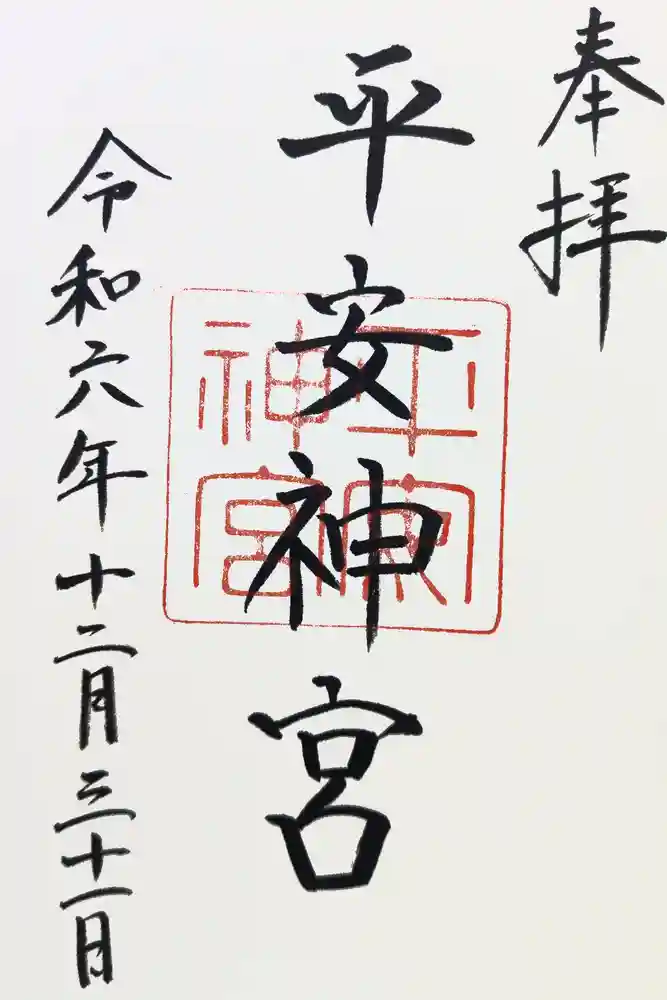 奉拝
平安神宮
平安神宮
令和六年十二月三十一日